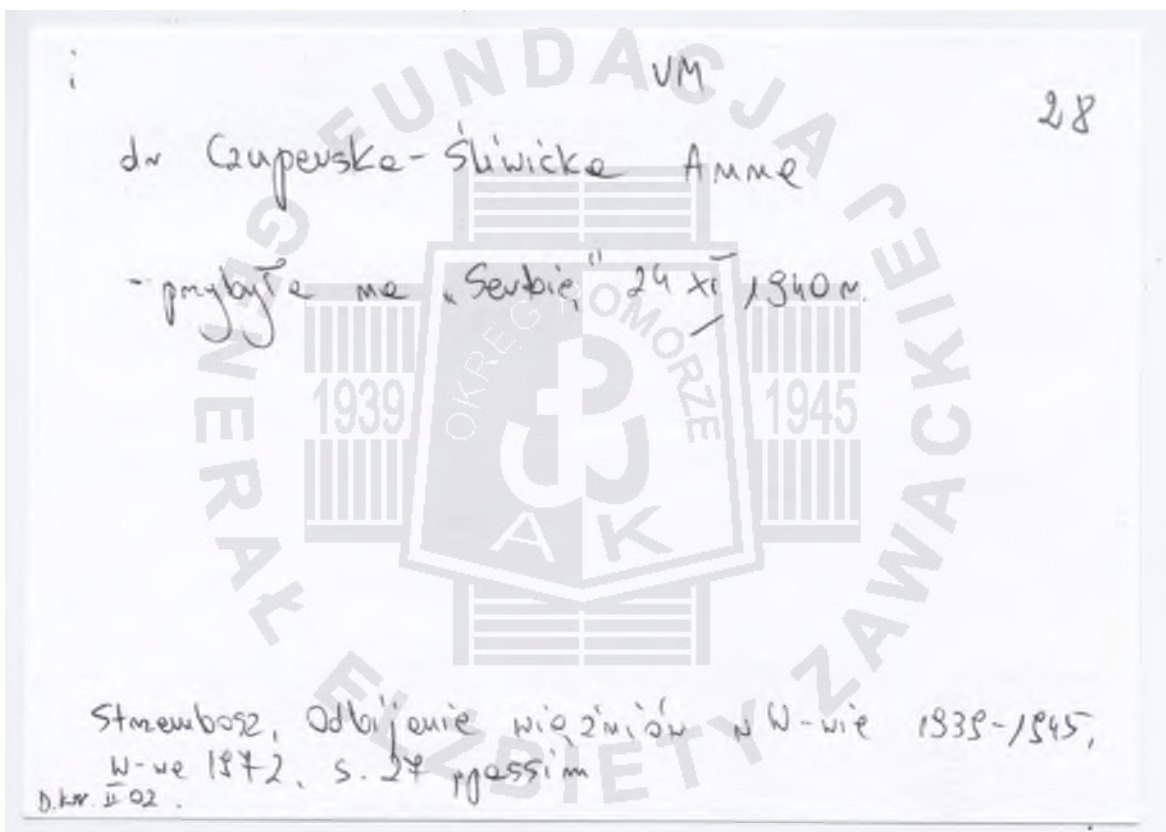 VM
28
dr Czuperska-Śliwicka Anna
- przybyła na "Serbię" 24 XI 1940 r.
Strzembosz, Odbijanie więźniów w W-wie 1939-1945,
W-wa 1972, s. 27 passim
D.kw. II 02.
FUNDACJA GENERAŁ ELŻBIETY ZAWACKIEJ
OKRĘG POMORZE
1939
1945
AK